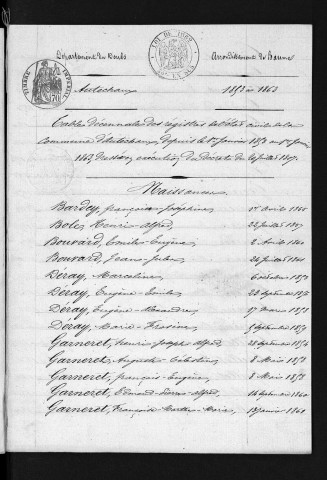 LOI DE 1862
Département du Doubs
Arrondissement de Baume
TIMBRE IMPERIAL
70
Autechaux
1853 à 1863
Tables décennales des registres de l'état civil de la
Commune d'Autechaux, depuis le 1er Janvier 1853 au 1er Janvier
1863, dressées en exécution du Décret du 20 Juillet 1807.
Naissances
Bardey, françoise Joséphine 1er Août
Bole, Henri Alfred Juillet
Bouvard, Emile Eugène 2 Août
Bouvard, Jean Jules Juillet
Déray, Marceline 6 octobre
Déray, Eugène Emile 20 Septembre
Déray, Eugène Alexandre 17 mars
Déray, Marie 5 Septembre
Garneret, henri Joseph Alfred 28 Septembre 1854
Garneret, Augustin Célestin 8 Mars 1858
Garneret, françois Eugène 8 Mars 1858
Garneret, Edmond Pierre Alfred 14 Septembre 1860
Garneret, Françoise Marthe Marie Janvier